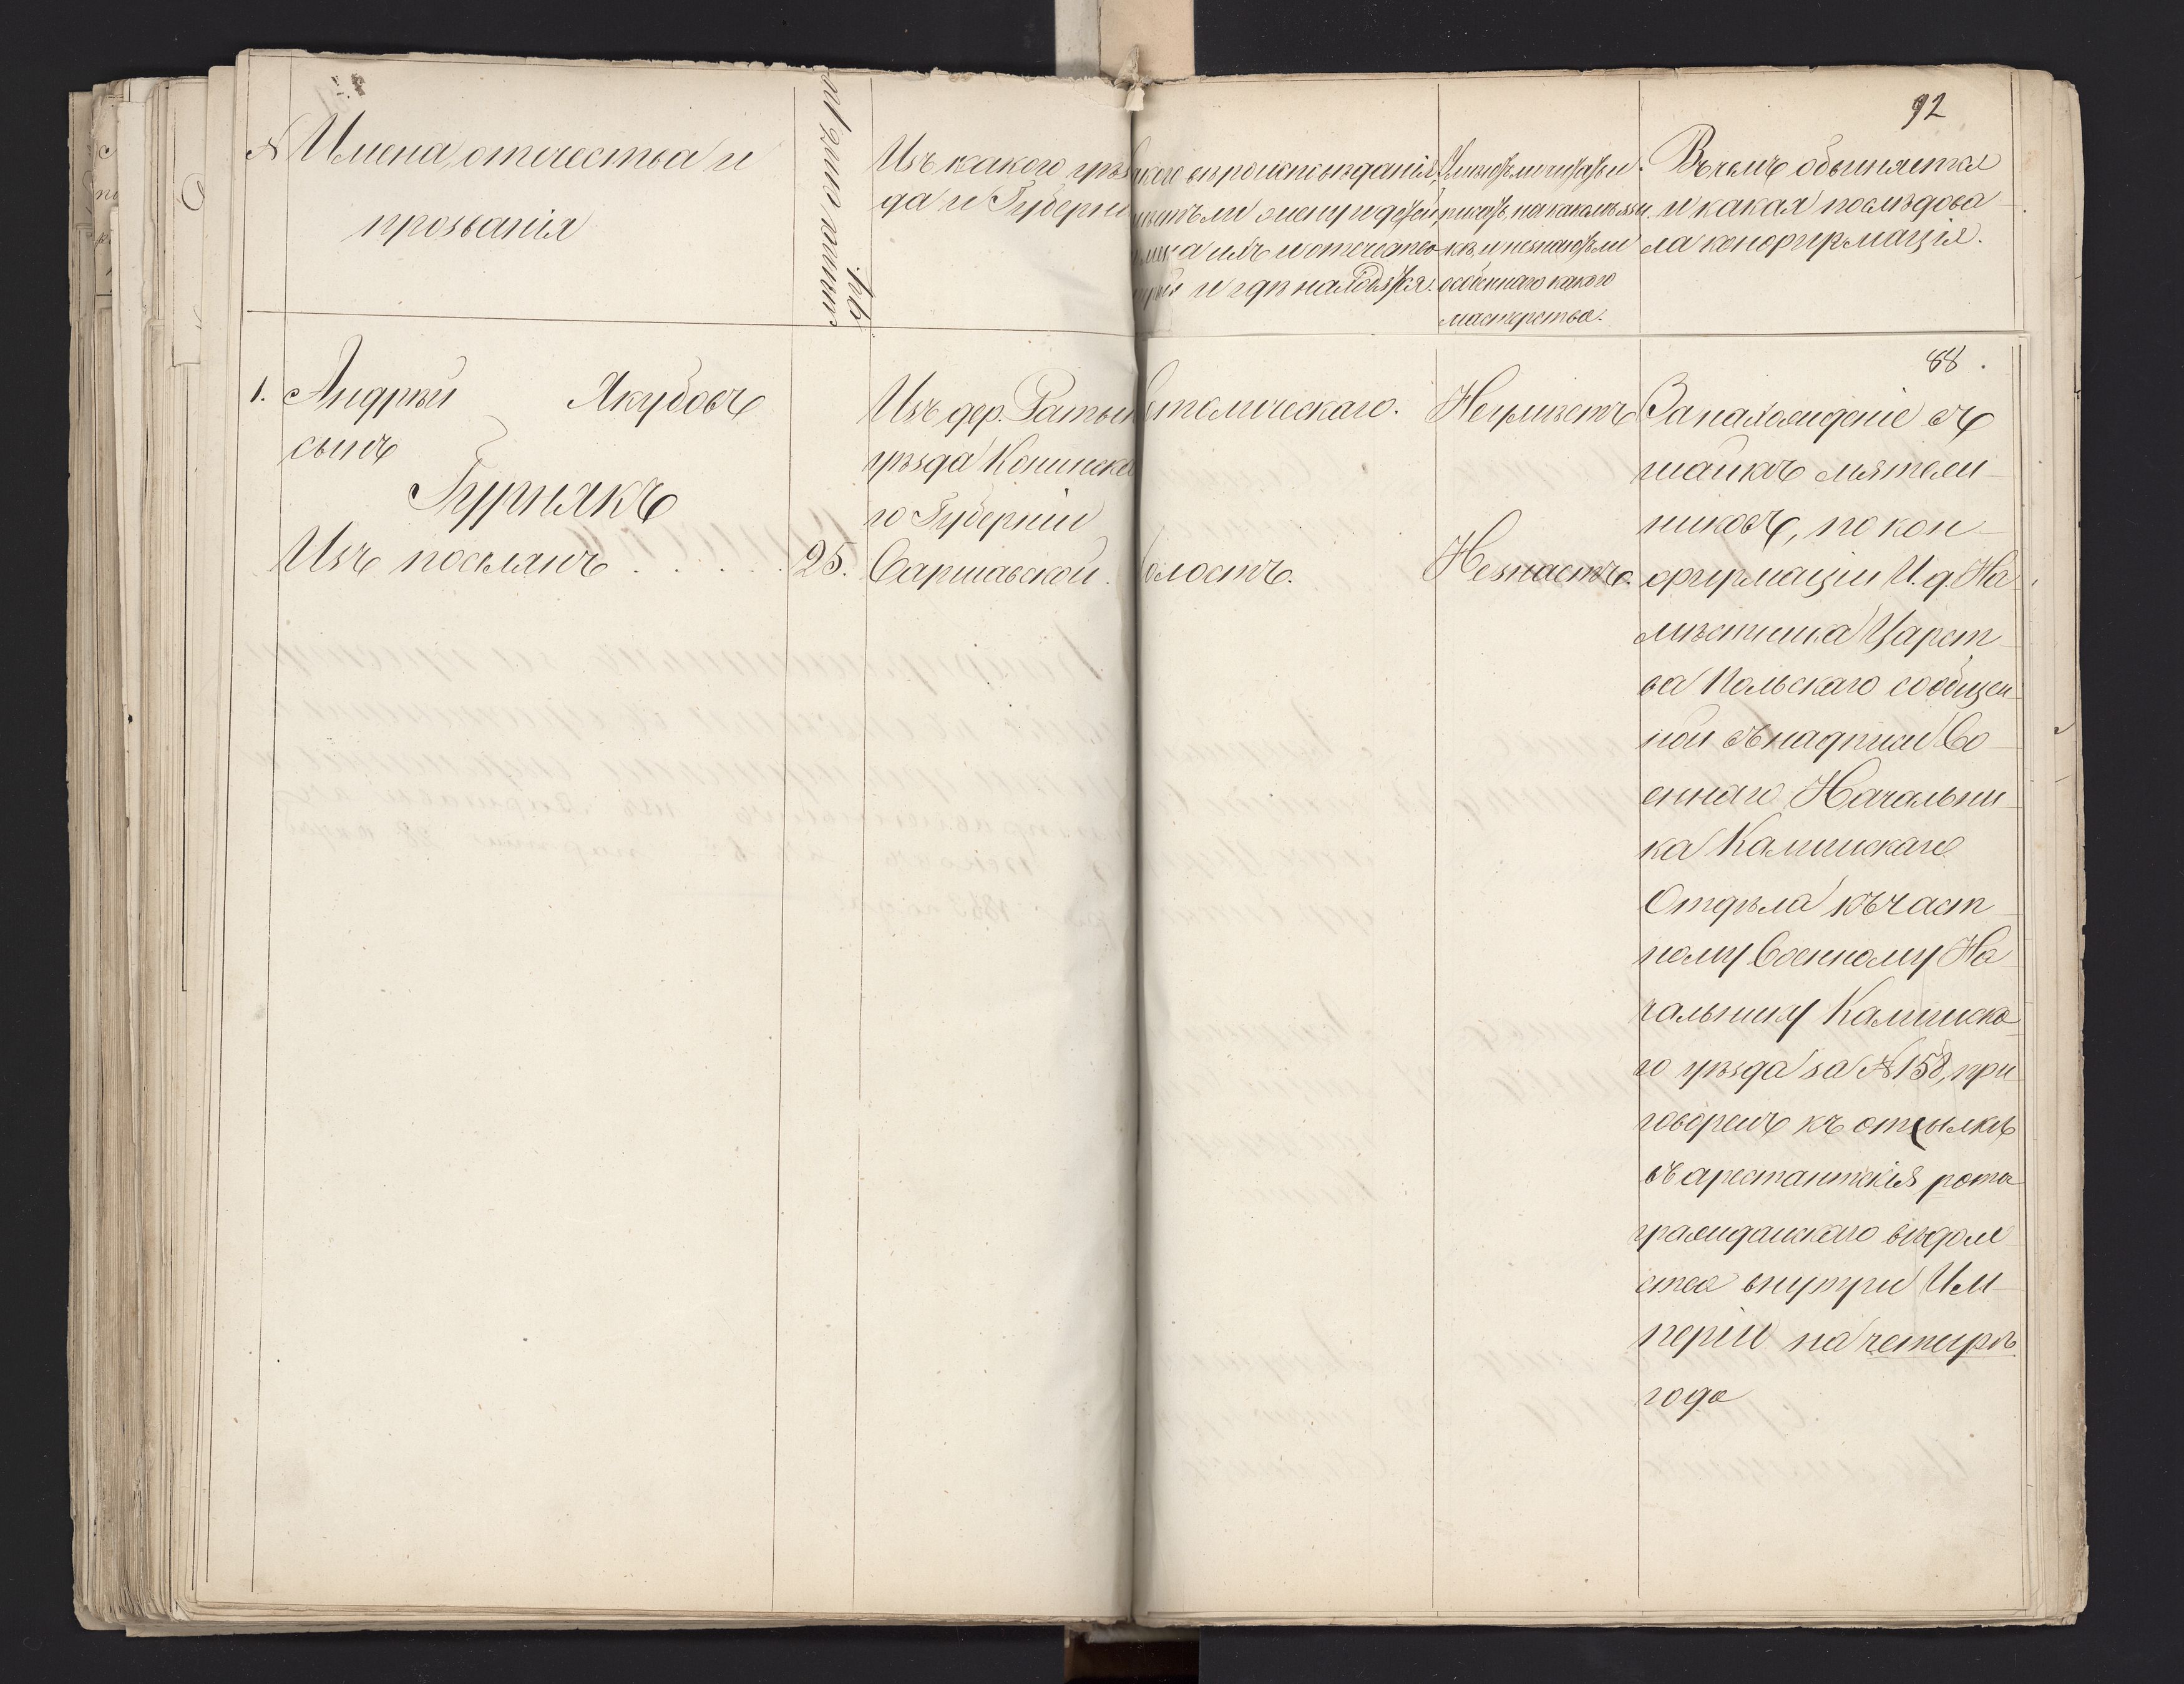 92
№ Имена отечества и
прозванія
Изъ какого уѣз
да и Губерні
вѣроисповѣданія,
ли жену и дѣтей,
ихъ и отечество
и гдѣ находятся.
Умѣютъ ли читать и
писать на какомъ язы
кѣ, и незнаютъ ли
особеннаго какого
мастерства.
Въ чемъ обвиняется
и какая послѣдова
ла конфирмація.
88.
1. Андрей Якубовъ
сынъ
Гурнякъ
Изъ поселянъ . . . . .
25.
Изъ дер.
уѣзда Конинска
го Губерніи
Варшавской.
толическаго.
олостъ.
Неумѣетъ
Незнаетъ.
За нахожденіе въ
шайкахъ мятеж
никовъ, по кон
фирмаціи И. д. На
мѣстника Царст
ва Польскаго сообщен
ной въ надписи Во
еннаго Начальни
ка Калишскаго
Отдѣла къ част
ному Военному На
чальнику Калишска
го уѣзда за № 158, при
говоренъ къ отсылкѣ
въ арестантскія роты
гражданскаго вѣдом
ства внутри Им
періи на четыре
года